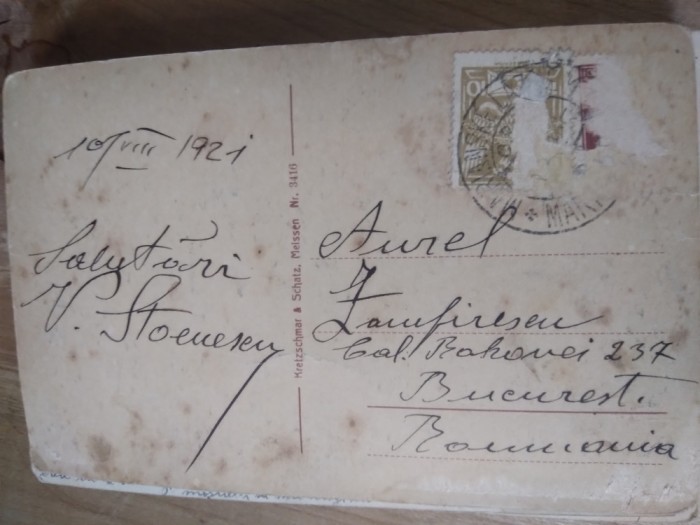 10/VIII 1921
Salutări
V. Stoenescu
Kretzschmar & Schatz, Meissen Nr. 3416
10
MARI
Aurel
Zamfirescu
Cal. Rahovei 237
Bucurest.
Roumania